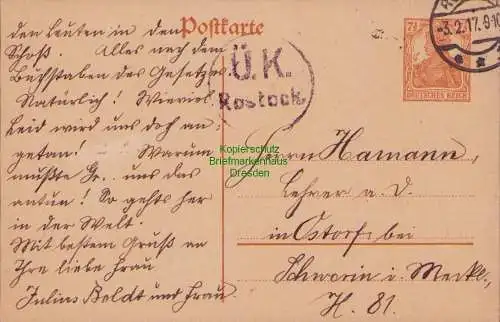 den Leuten in den
Schoß. Alles nach dem
Buchstaben des Gesetzes
Natürlich! Wieviel
Leid wird uns doch an-
getan! Warum
mußte Gr. uns das
antun! So gehts her
in der Welt.
Mit bestem Gruß an
Ihre liebe Frau
Julius Boldt und Frau.
Postkarte
Ü.K.
Rostock.
-3.2.17.9-10
7½
DEUTSCHES REICH
Kopierschutz
Briefmarkenhaus
Dresden
Herrn Hamann,
Lehrer a. D.
in Ostorf bei
Schwerin i. Meckl.
H. 81.